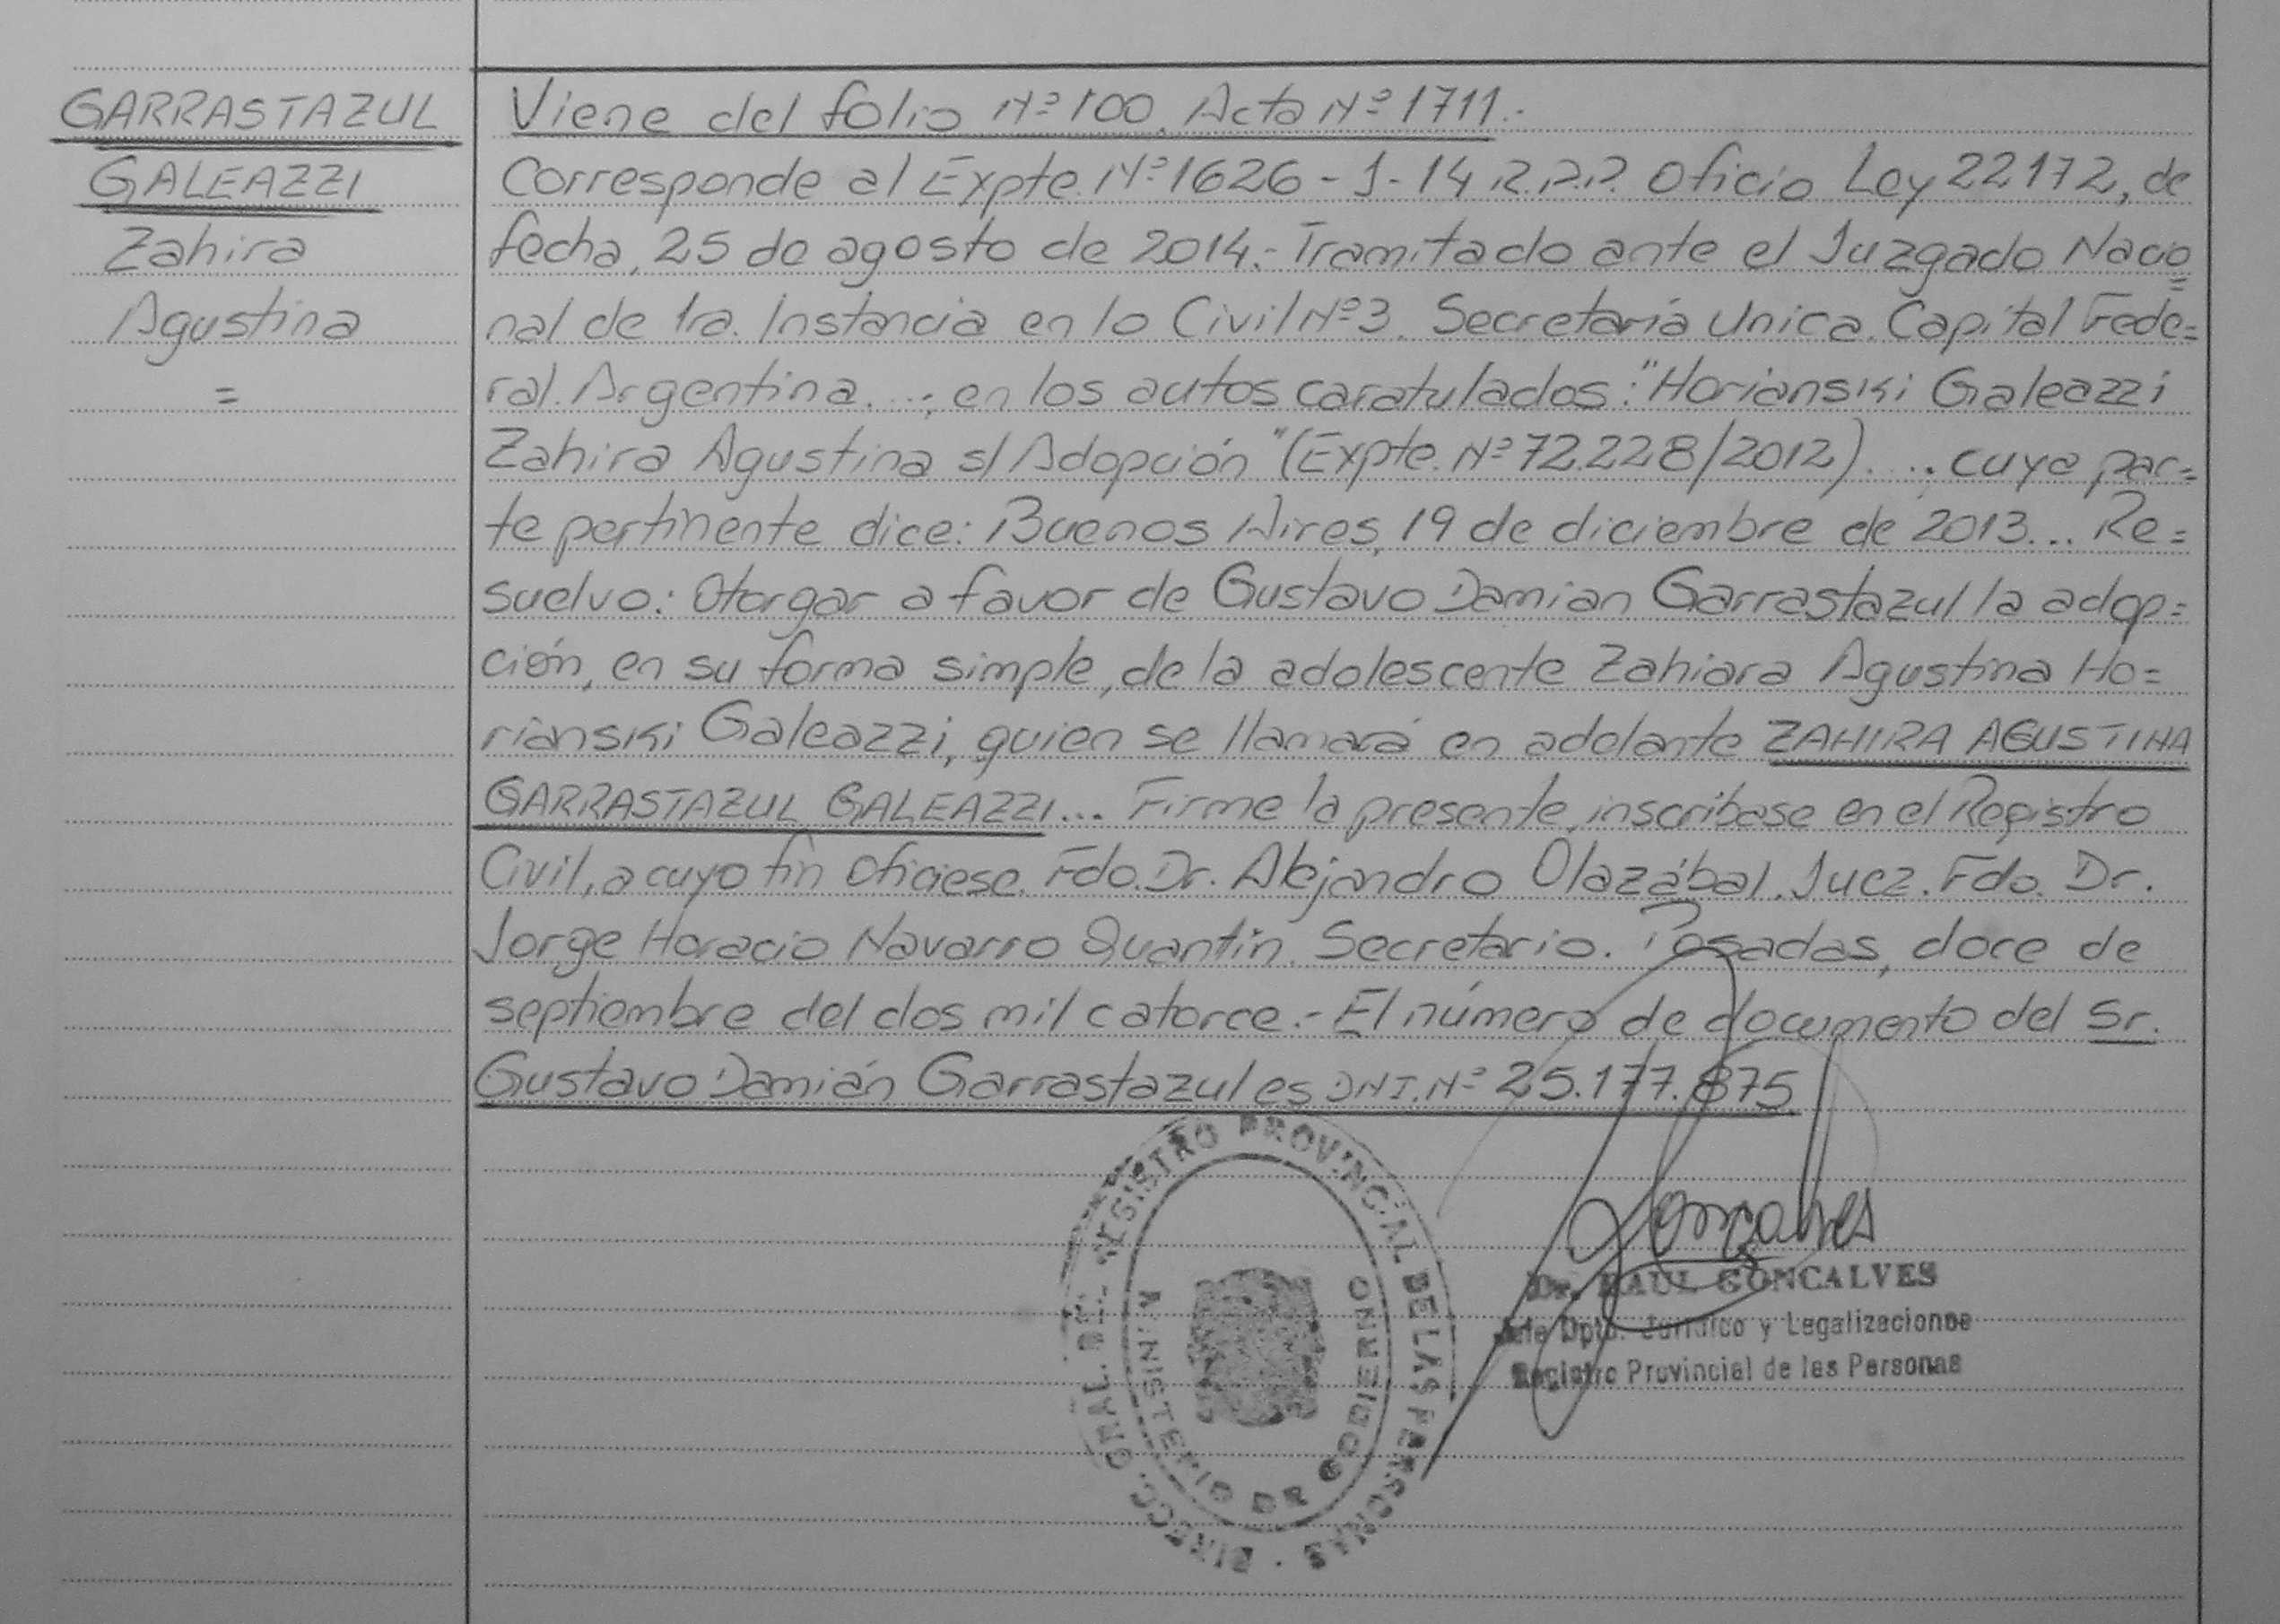 GARRASTAZUL
GALEAZZI
Zahira
Agustina
=
Viene del folio Nº 100. Acta Nº 1711.-
Corresponde al Expte. Nº 1626-J-14 R.P.P. Oficio Ley 22172, de
fecha, 25 de agosto de 2014.- Tramitado ante el Juzgado Nacio=
nal de 1ra. Instancia en lo Civil Nº 3. Secretaría Unica. Capital Fede=
ral. Argentina...; en los autos caratulados: "Horianski Galeazzi
Zahira Agustina s/ Adopción" (Expte. Nº 72.228/2012)...; cuya par=
te pertinente dice: Buenos Aires, 19 de diciembre de 2013... Re=
suelvo: Otorgar a favor de Gustavo Damian Garrastazul la adop=
ción, en su forma simple, de la adolescente Zahiara Agustina Ho=
rianski Galeazzi, quien se llamará en adelante ZAHIRA AGUSTINA
GARRASTAZUL GALEAZZI... Firme la presente, inscribase en el Registro
Civil, a cuyo fin oficiese. Fdo. Dr. Alejandro Olazábal. Juez. Fdo. Dr.
Jorge Horacio Navarro Quantin. Secretario. Posadas, doce de
septiembre del dos mil catorce.- El número de documento del Sr.
Gustavo Damián Garrastazul es DNI. Nº 25.177.875
DIRECC. GRAL. DEL REGISTRO PROVINCIAL DE LAS PERSONAS
MINISTERIO DE GOBIERNO
Goncalves
Dr. RAUL GONCALVES
Jefe Dpto. Jurídico y Legalizaciones
Registro Provincial de las Personas